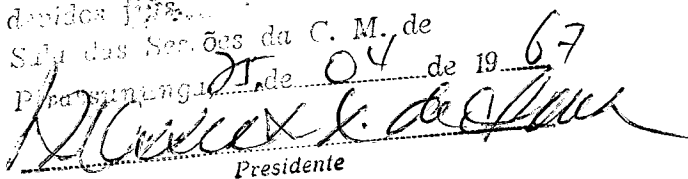 devidos fins.
Sala das Sessões da C. M. de
Pirassununga, 25 de 04 de 19 67
Presidente